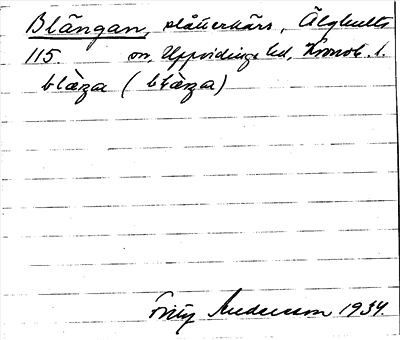 Blängan, slåtterkärr, Älghults
115. sn, Uppvidinge hd, Kronob. l.
blàŋa (blàŋa)
Fritz Andersson 1934.